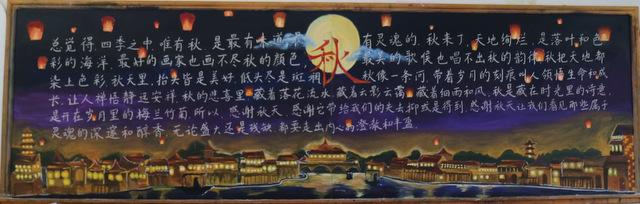 总觉得,四季之中,唯有秋,是最有味道最 秋 有灵魂的。秋来了,天地绚烂,是落叶和色
彩的海洋。最好的画家也画不尽秋的颜色, 最美的歌候也唱不出秋的韵律,秋把天地都
染上色彩,秋天里,抬头皆是美好,低头尽是斑斓 秋像一条河,带着岁月的刻痕,让人领悟生命和成
长,让人禅悟静远安祥,秋的悲喜里藏着落花流水,藏着云影云霭,藏着细雨和风,秋是藏在时光里的诗意,
是开在岁月里的梅兰竹菊,所以,感谢秋天,感谢它带给我们的失去抑或是得到,感谢秋天让我们看见那些属于
灵魂的深邃和醇香,无论盛大还是残缺,都要走出内心的澄澈和丰盈